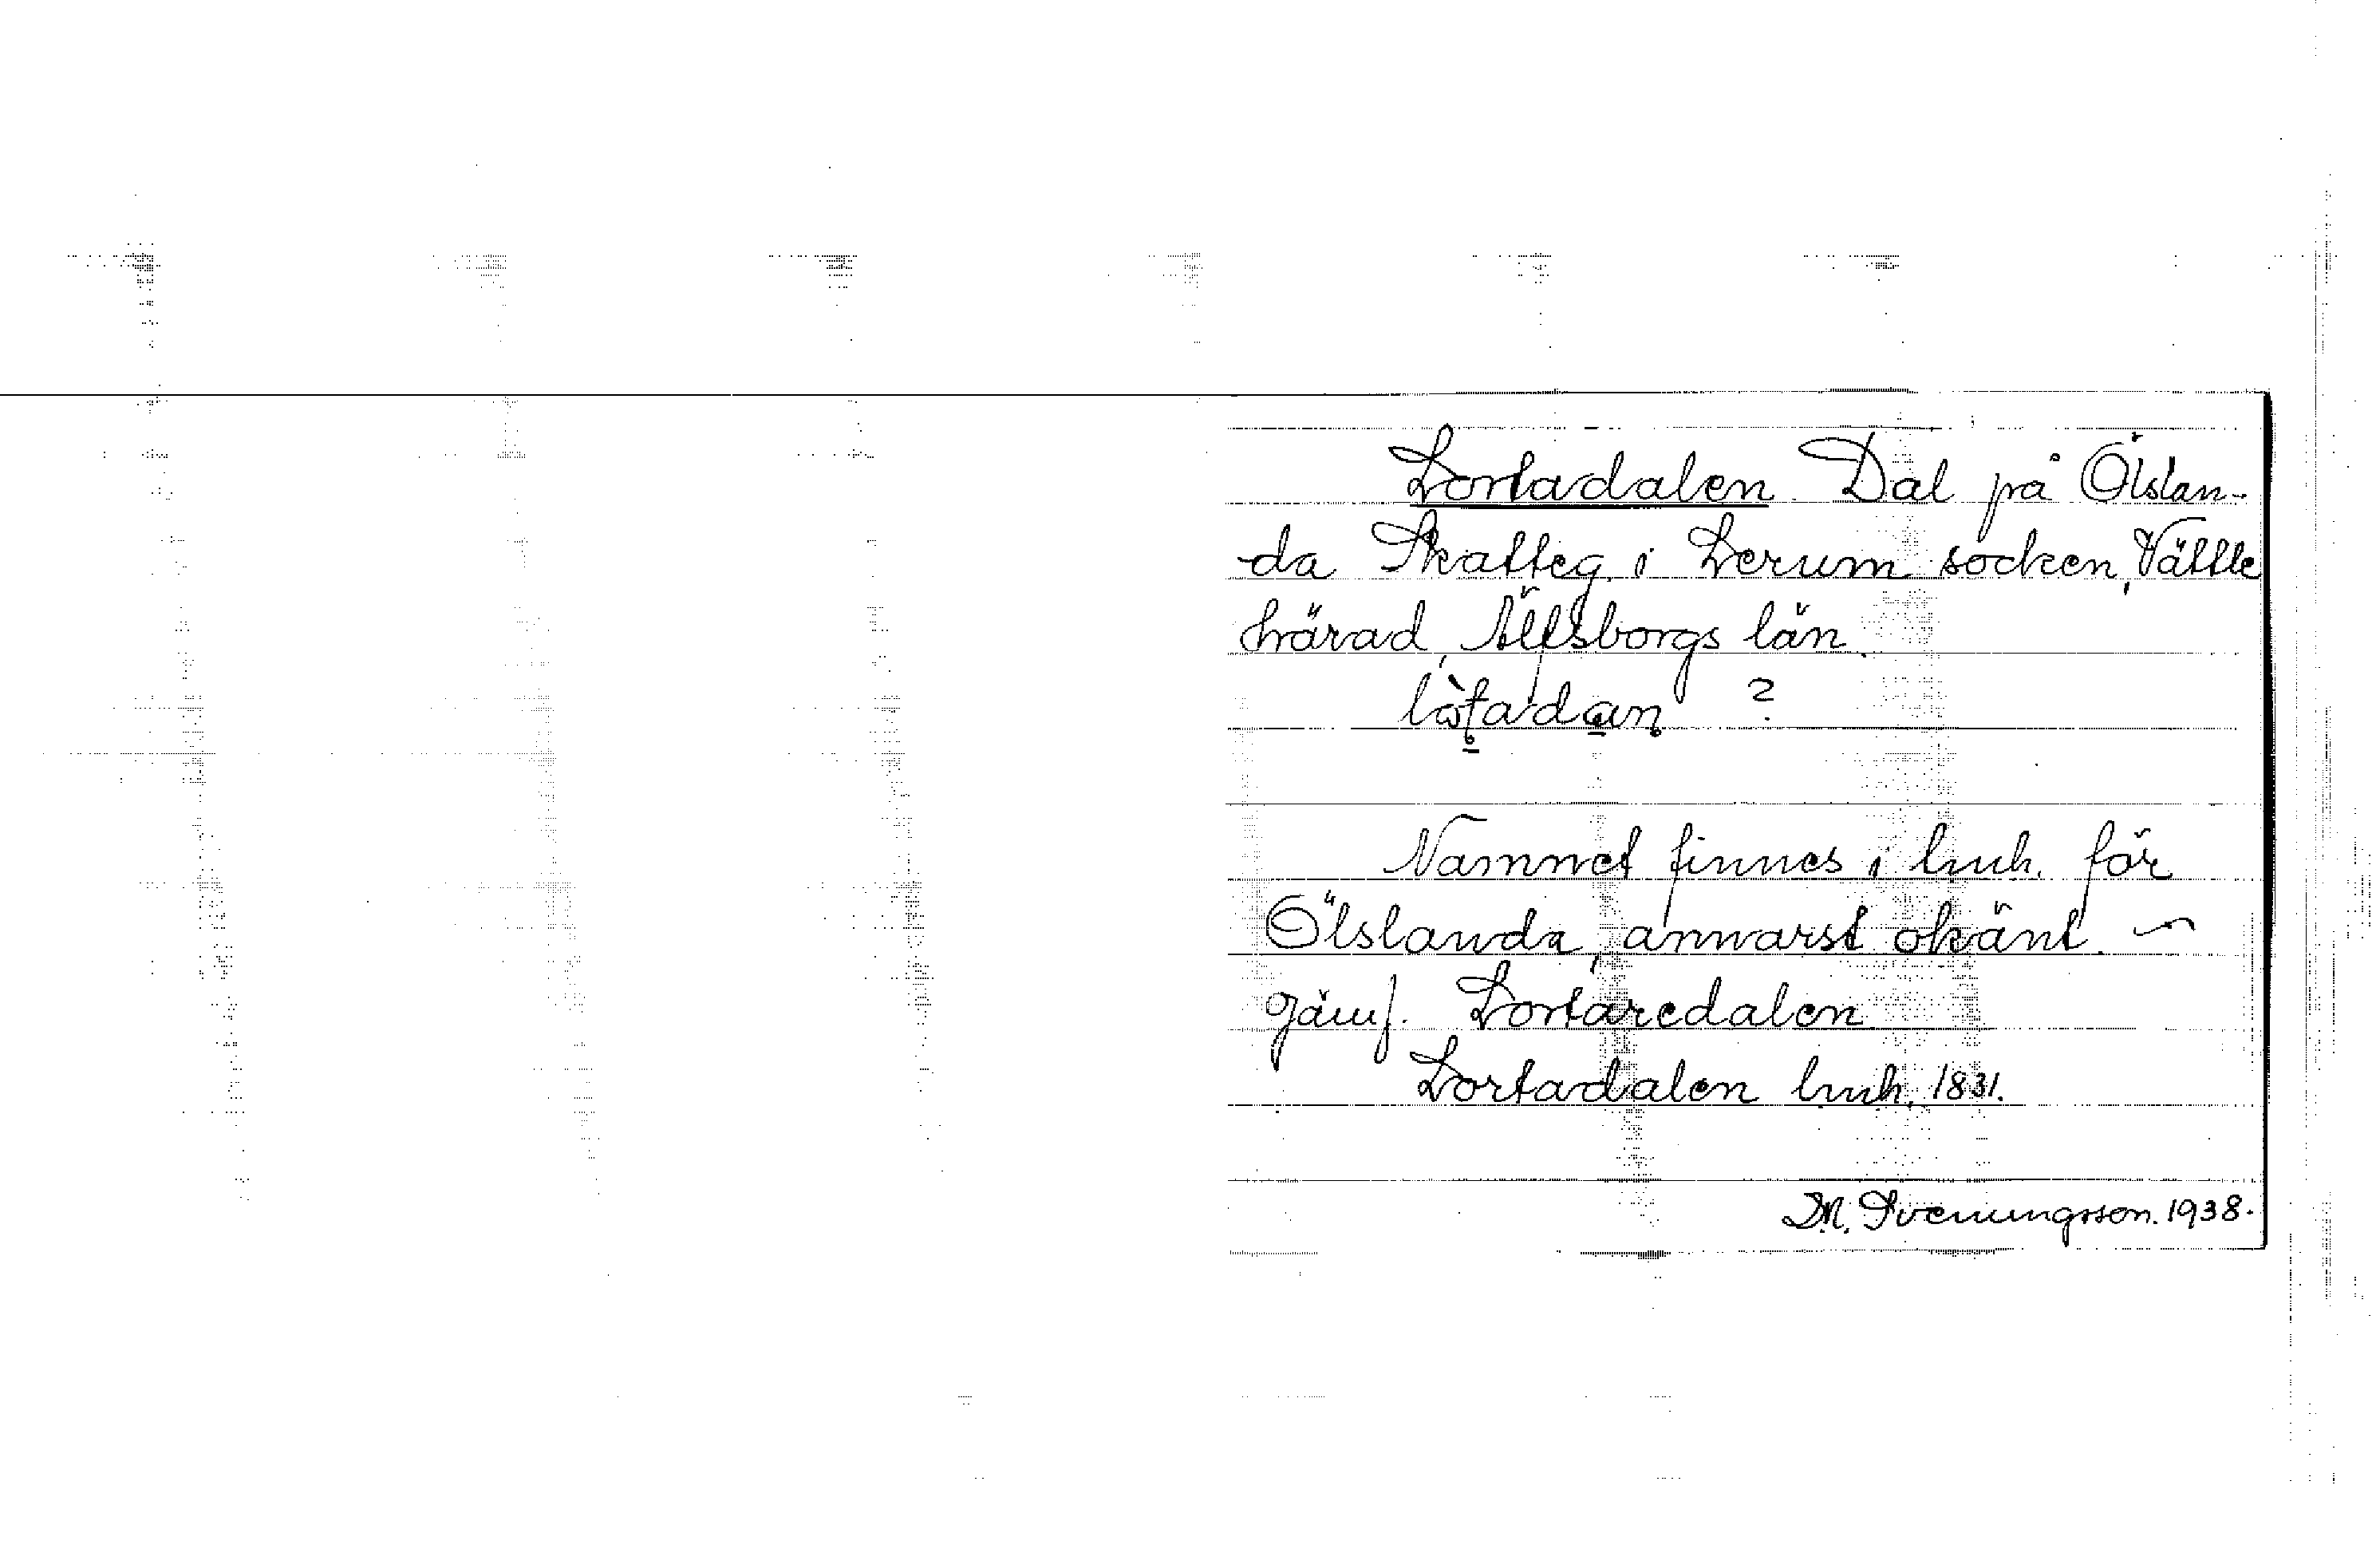 Lortadalen. Dal på Ölslan-
da Skatteg. i Lerum socken, Vättle
härad, Älfsborgs län.
?
Namnet finnes i lmh. för
Ölslanda, annarst okänt. –
Jämf. Lortaredalen
Lortadalen lmh. 1831.
D.N. Svenungsson. 1938.